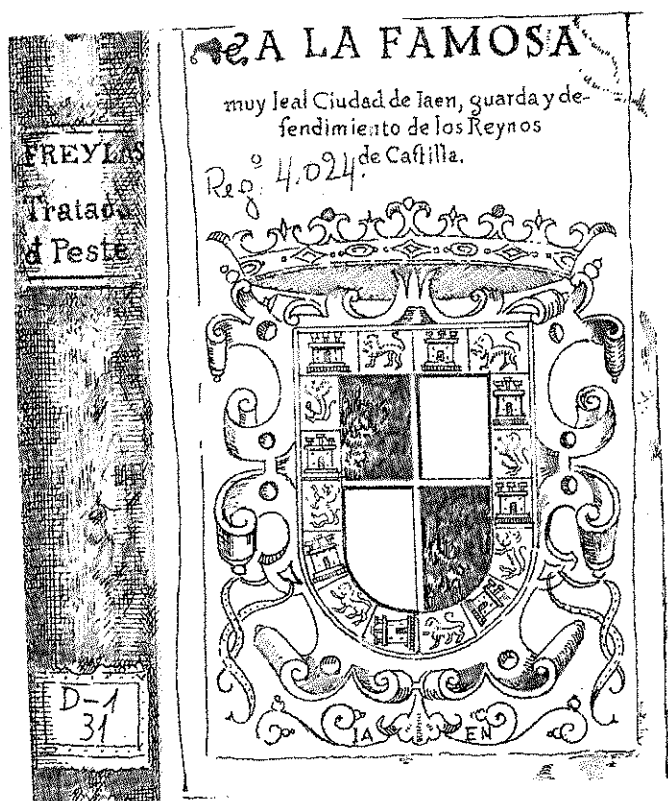 FREYLAS
Tratado
d Peste
D-1
31
A LA FAMOSA
muy leal Ciudad de Iaen, guarda y de-
fendimiento de los Reynos
de Caſtilla.
Regº 4.024.
IA EN